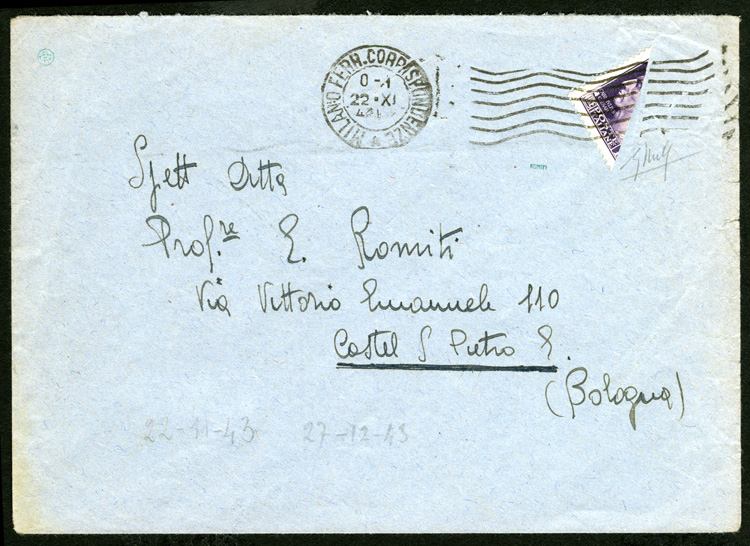 MILANO FERR. CORRISPONDENZE
0-1
22·XI
Spett Ditta
Prof.re E. Romiti
Via Vittorio Emanuele 110
Castel S Pietro E.
(Bologna)
22-11-43 27-12-43